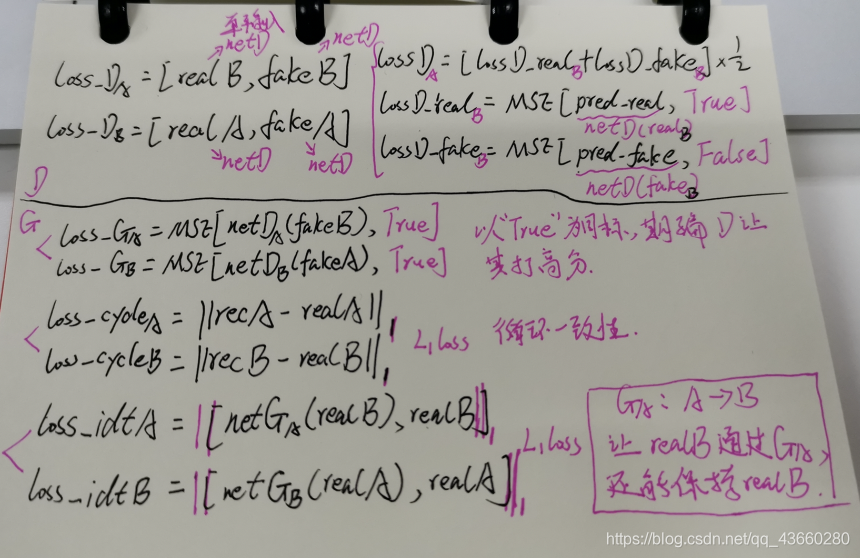 单独输入
netD
netD
loss_D_A = [realB, fakeB]
loss_D_B = [realA, fakeA]
netD
netD
lossD_A = [lossD_real_B + lossD_fake_B] × 1/2
lossD_real_B = MSE[pred-real, True]
netD(real_B)
lossD_fake_B = MSE[pred-fake, False]
netD(fake_B)
D
G
loss_G_A = MSE[netD_A(fakeB), True]
loss_G_B = MSE[netD_B(fakeA), True]
以"True"为目标,期骗D让
其打高分.
loss_cycleA = ||recA - realA||₁
loss_cycleB = ||recB - realB||₁
L₁loss 循环一致性.
loss_idtA = ||[netG_A(realB), realB]||₁
loss_idtB = ||[netG_B(realA), realA]||₁
L₁loss
G_A: A→B
让realB通过G_A,
还能保持realB.
https://blog.csdn.net/qq_43660280